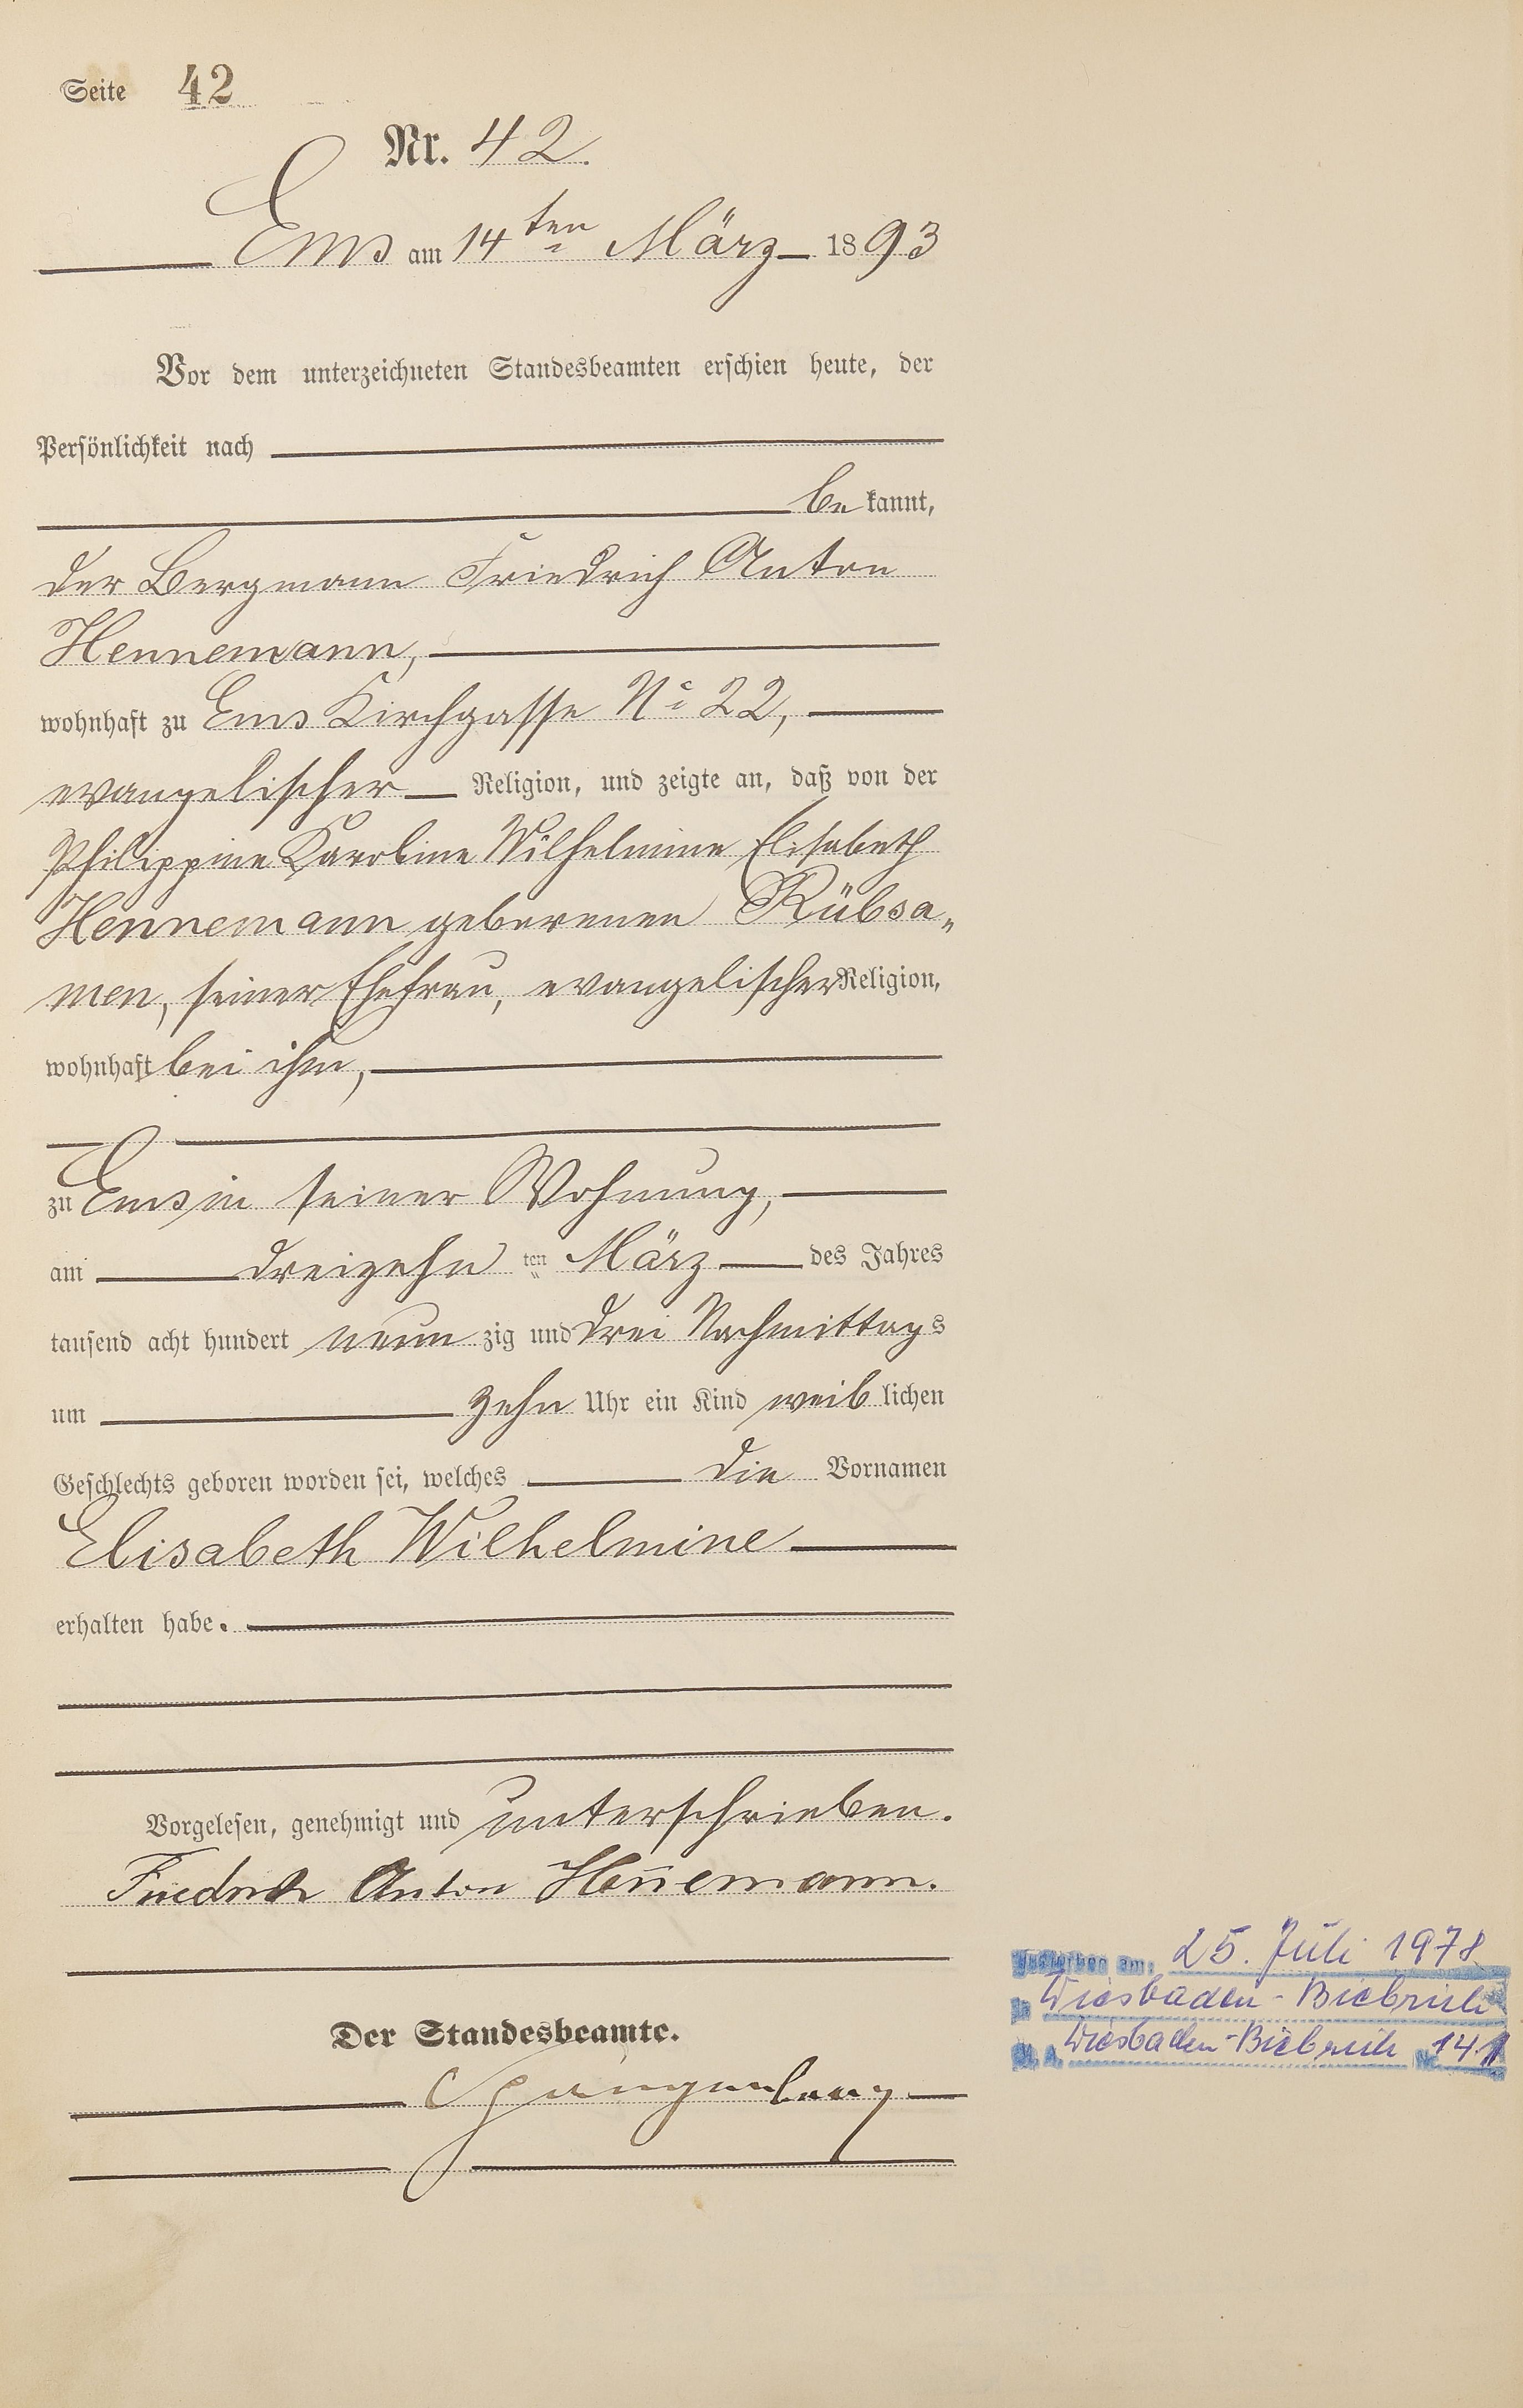 Seite 42
Nr. 42.
Ems am 14ten März 1893
Vor dem unterzeichneten Standesbeamten erschien heute, der
Persönlichkeit nach
be kannt,
der Bergmann Friedrich Anton
Hennemann,
wohnhaft zu Ems Kirchgasse No 22,
evangelischer Religion, und zeigte an, daß von der
Philippine Karoline Wilhelmine Elisabeth
Hennemann geborenen Rübsa„
men, seiner Ehefrau, evangelischer Religion,
wohnhaft bei ihm,
zu Ems in seiner Wohnung,
am dreizehn ten März des Jahres
tausend acht hundert neun zig und drei Nachmittags
um zehn Uhr ein Kind weib lichen
Geschlechts geboren worden sei, welches die Vornamen
Elisabeth Wilhelmine
erhalten habe.
Vorgelesen, genehmigt und unterschrieben.
Friedrich Anton Hen̄emann.
Der Standesbeamte.
am: 25. Juli 1978
Wiesbaden-Biebrich
Wiesbaden-Biebrich